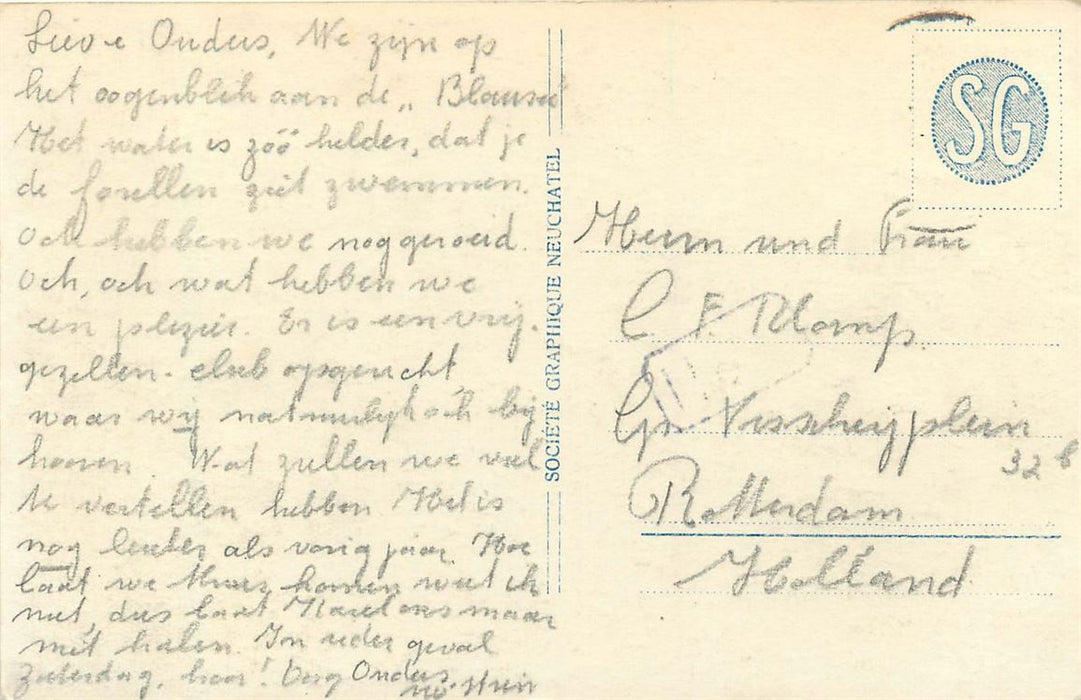 Lieve Ouders, We zijn op
het oogenblik aan de „Blausee"
Het water is zóó helder, dat je
de forellen ziet zwemmen.
Ook hebben we nog geroeid.
Och, och wat hebben we
een plezier. Er is een vrij-
gezellen-club opgericht,
waar wij natuurlijk ook bij
hooren. Wat zullen we veel
te vertellen hebben Het is
nog leuker als vorig jaar. Hoe
laat we thuis komen weet ik
niet, dus laat Karel ons maar
niet halen. In ieder geval
Zaterdag, hoor! Dag Ouders.
SOCIÉTÉ GRAPHIQUE NEUCHATEL
SG
Herrn und Frau
C. F. Klomp
Gr. Visscherijplein
32 b
Rotterdam
Holland